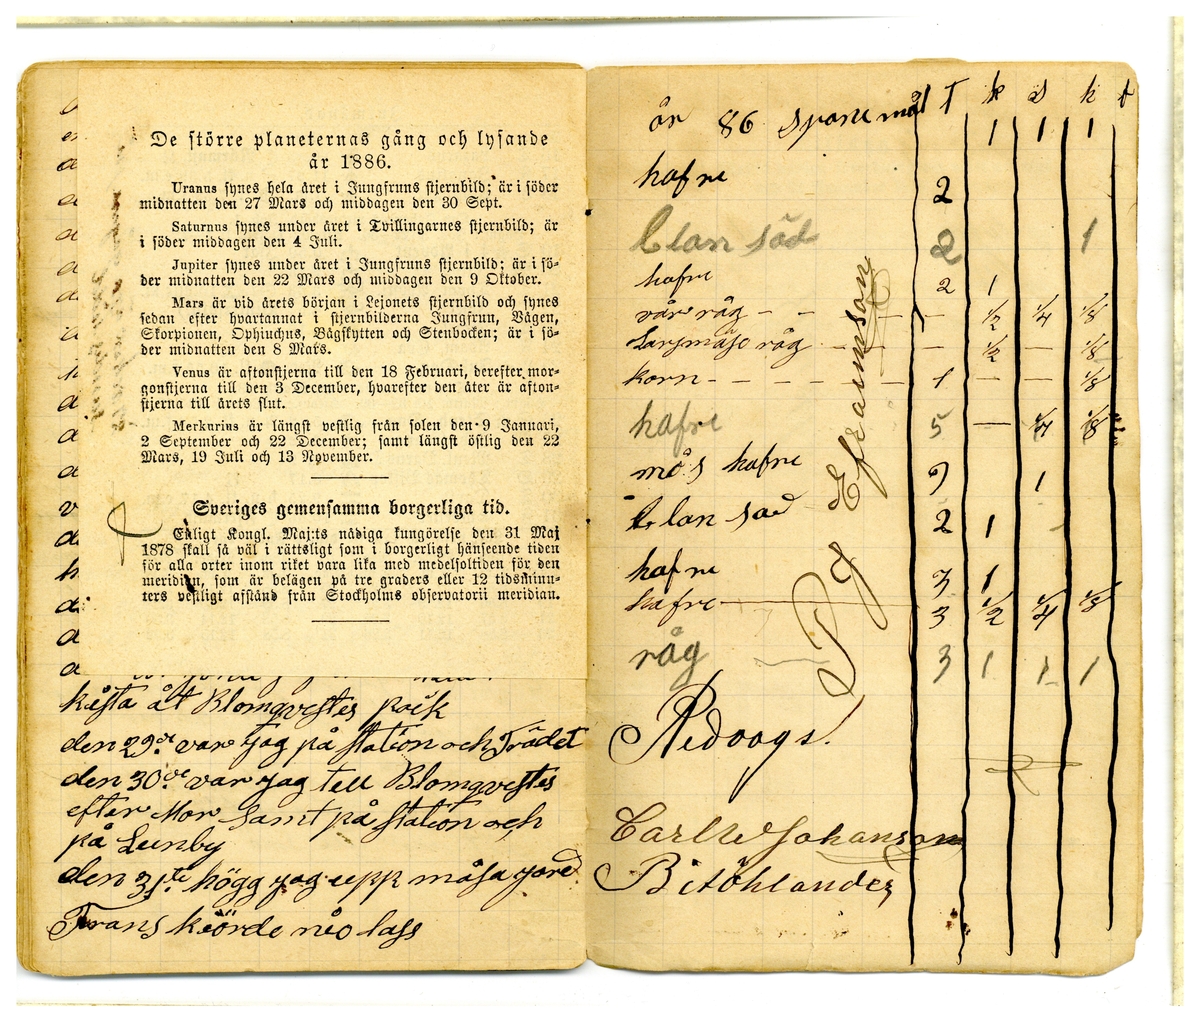 De större planeternas gång och lysande
år 1886.
Uranus synes hela året i Jungfruns stjernbild; är i söder
midnatten den 27 Mars och middagen den 30 Sept.
Saturnus synes under året i Tvillingarnes stjernbild; är
i söder middagen den 4 Juli.
Jupiter synes under året i Jungfruns stjernbild; är i sö-
der midnatten den 22 Mars och middagen den 9 Oktober.
Mars är vid årets början i Lejonets stjernbild och synes
sedan efter hvartannat i stjernbilderna Jungfrun, Vågen,
Skorpionen, Ophiuchus, Bågskytten och Stenbocken; är i sö-
der midnatten den 8 Mars.
Venus är aftonstjerna till den 18 Februari, derefter mor-
gonstjerna till den 3 December, hvarefter den åter är afton-
stjerna till årets slut.
Merkurius är längst vestlig från solen den 9 Januari,
2 September och 22 December; samt längst östlig den 22
Mars, 19 Juli och 13 November.
Sveriges gemensamma borgerliga tid.
Enligt Kongl. Maj:ts nådiga kungörelse den 31 Maj
1878 skall så väl i rättsligt som i borgerligt hänseende tiden
för alla orter inom riket vara lika med medelsoltiden för den
meridian, som är belägen på tre graders eller 12 tidsminu-
ters vestligt afstånd från Stockholms observatorii meridian.
kista åt Blomqvestes pojk
den 29de var jag på station och Trädet
den 30de var jag tell Blomqvestes
efter Mor samt på station och
på Lunby
den 31te högg jag upp måsajord
Frans kiörde nio lass
år 86 spanemål T k s k f
1 1 1
hafre 2
blan säd 2 1
hafre 2 1
vår råg - - - - 1/2 1/4 1/8
råg - - - 1/2 - 1/8
korn - - - - - 1 - - 1/8
hafre 5 - 1/4 1/8
mås hafre 9 1
blan sad 2 1
hafre 3 1
hafre 3 1/2 1/4 1/8
råg 3 1 1 1
P g Efraimson
Redvags.
Carl W Johanson